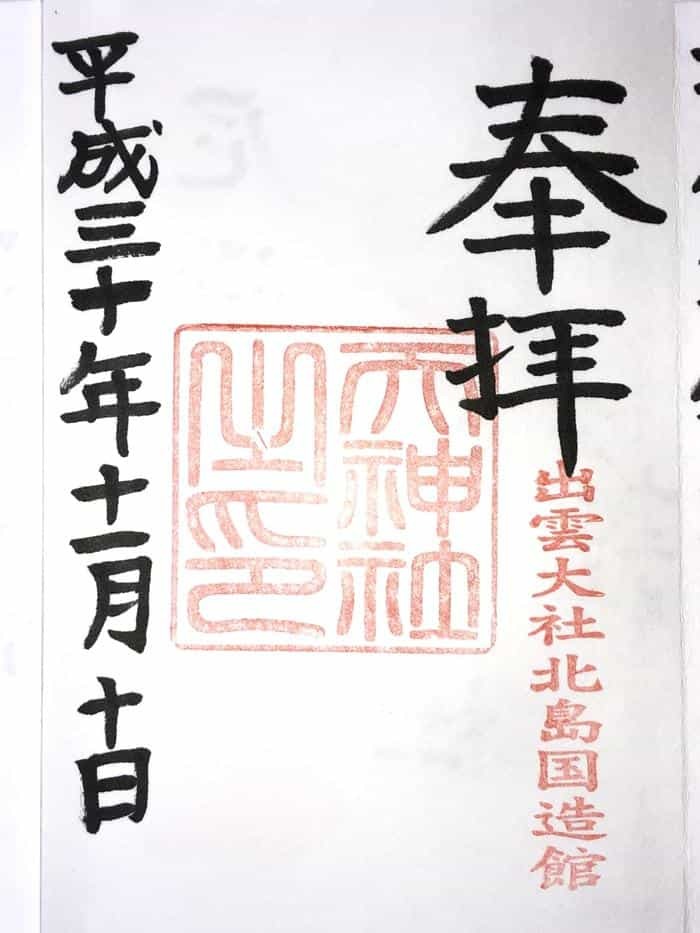 奉拝
出雲大社北島国造館
天神社
之印
平成三十年十一月十日